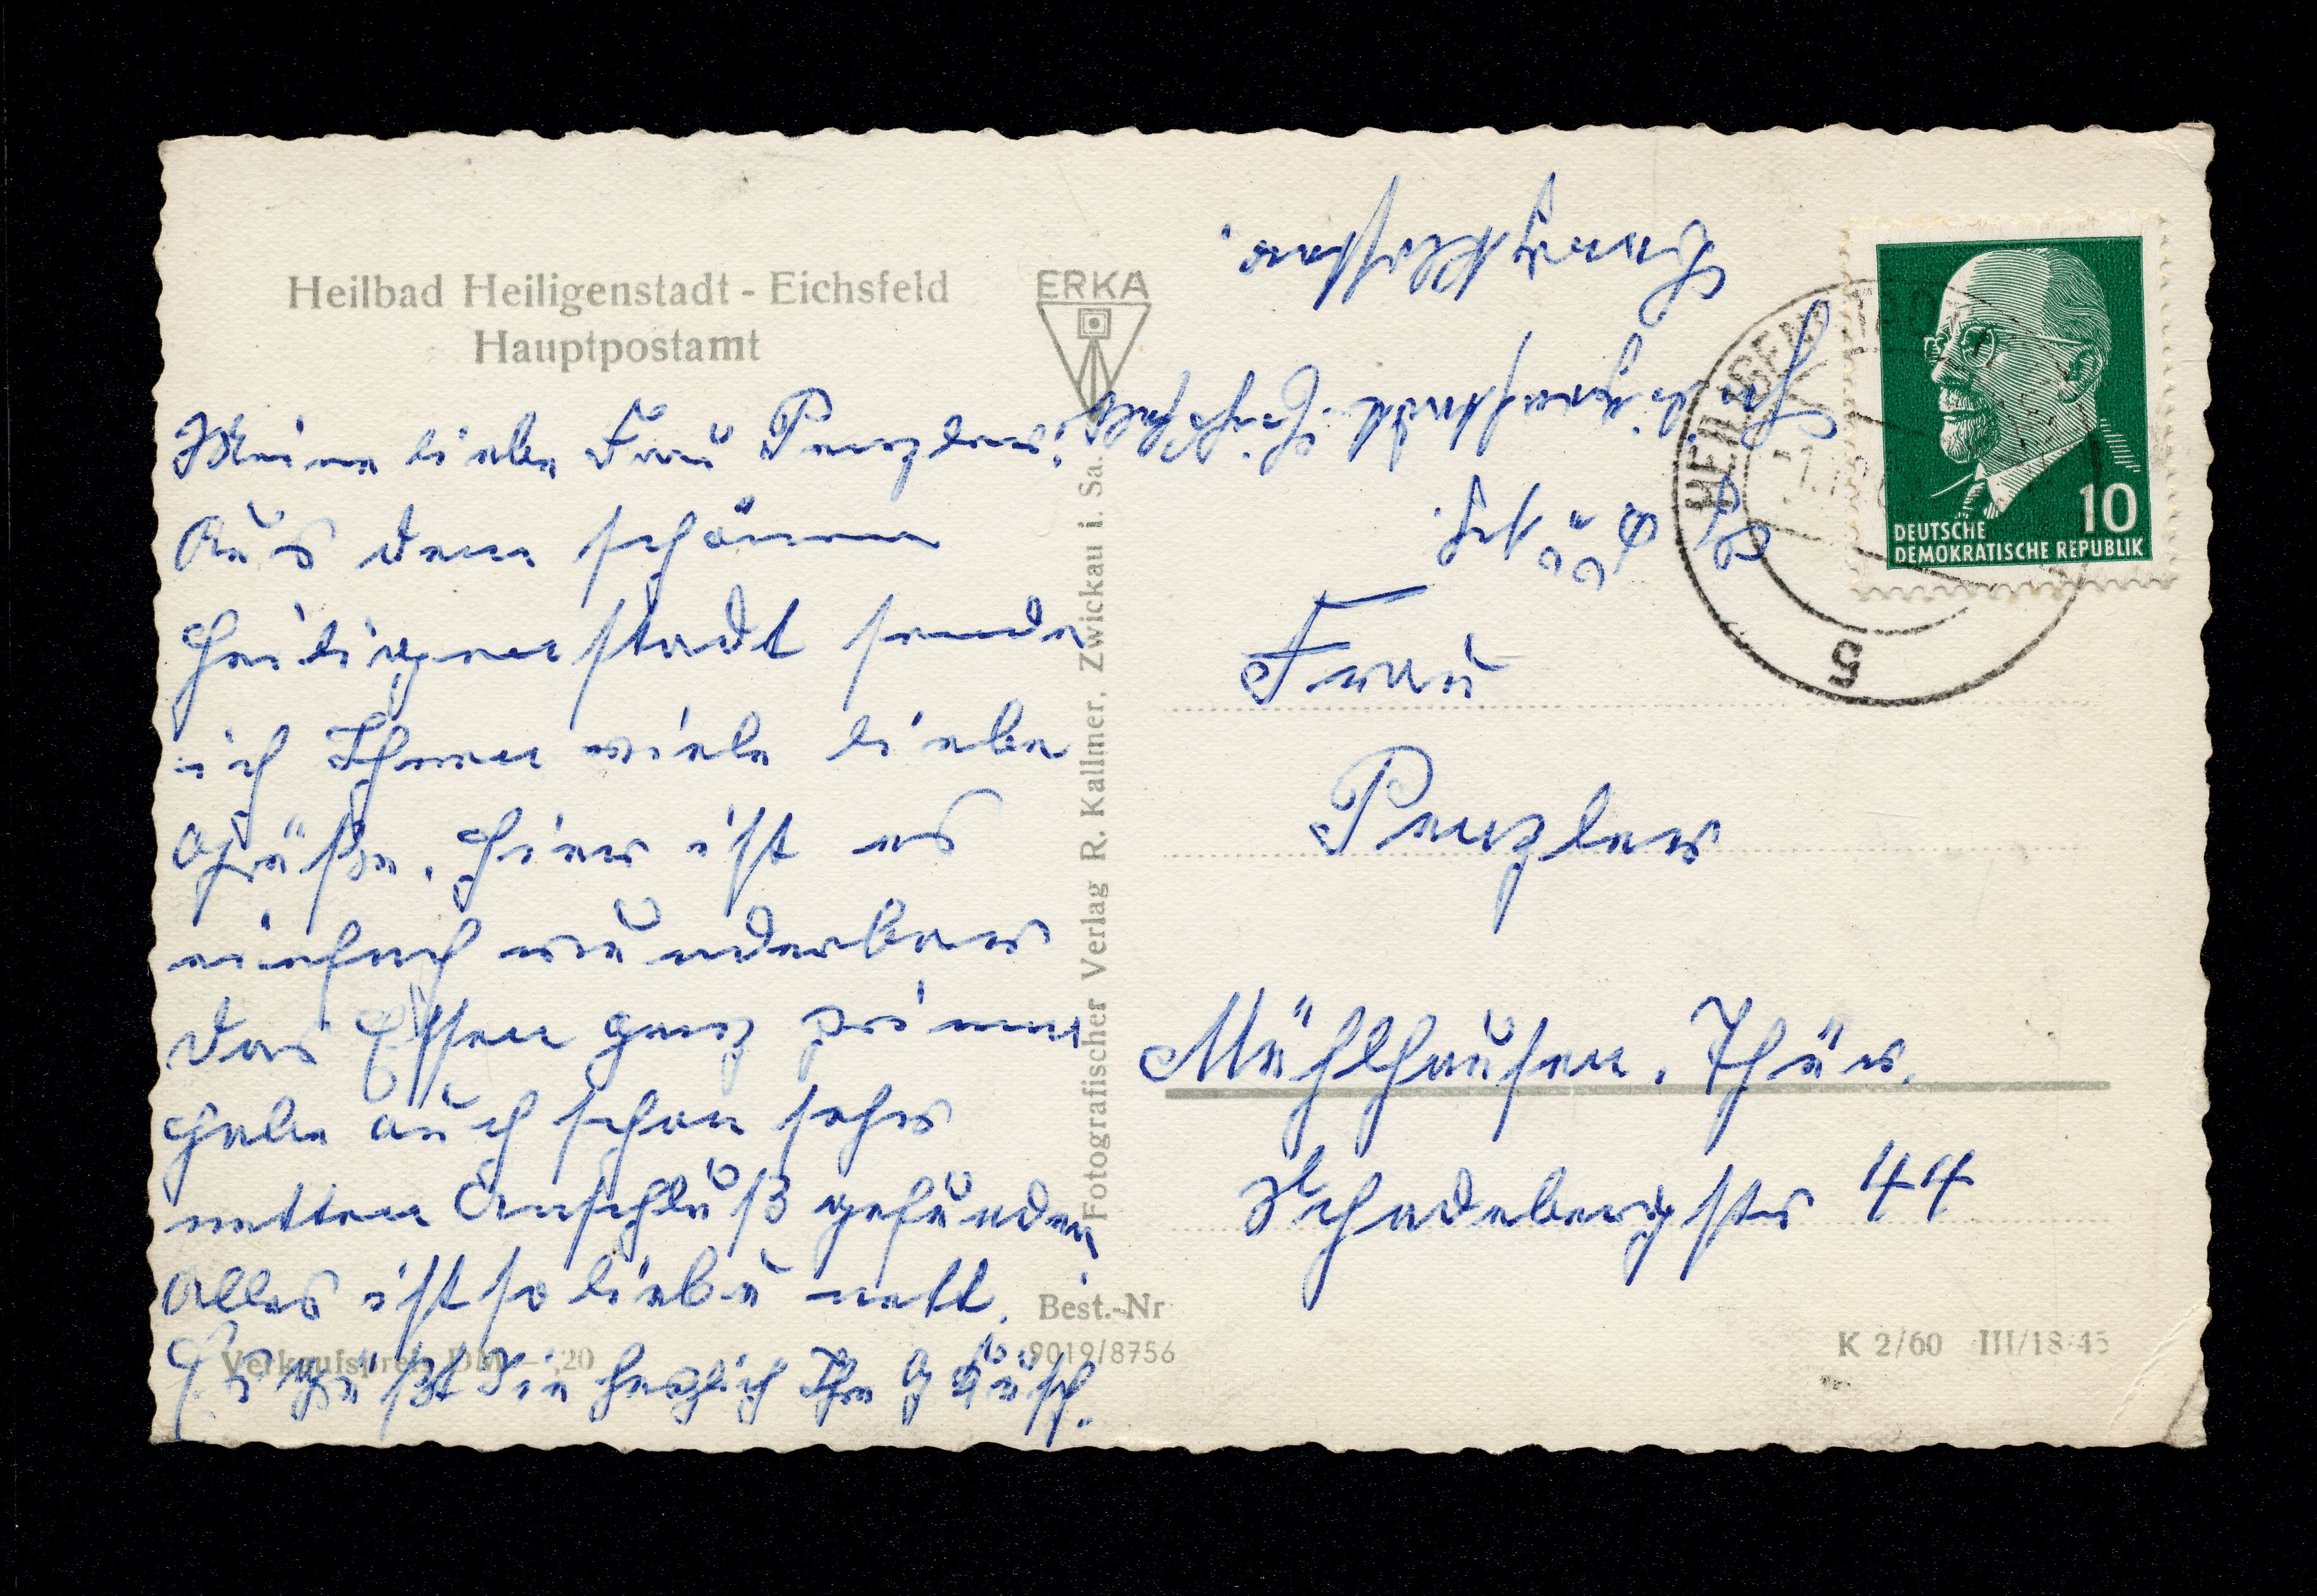 Heilbad Heiligenstadt - Eichsfeld
Hauptpostamt
Meine liebe Frau Penzler!
Aus dem schönen
Heiligenstadt sende
ich Ihnen viele liebe
Grüße. Hier ist es
einfach wunderbar
das Essen ganz prima
habe auch schon sehr
netten Anschluß gefunden.
Alles ist so lieb u nett.
Es grüßt Sie herzlich Ihre
Verkaufspreis DM —,20
ERKA
Fotografischer Verlag R. Kallmer, Zwickau i. Sa.
Best.-Nr
9019/8756
Heiligenstadt Eichsfeld
Bergkloster.
HEILIGENSTADT
5
10
DEUTSCHE
DEMOKRATISCHE REPUBLIK
Frau
Penzler
Mühlhausen. Thür.
Schadebergstr 44
K 2/60 III/18/45